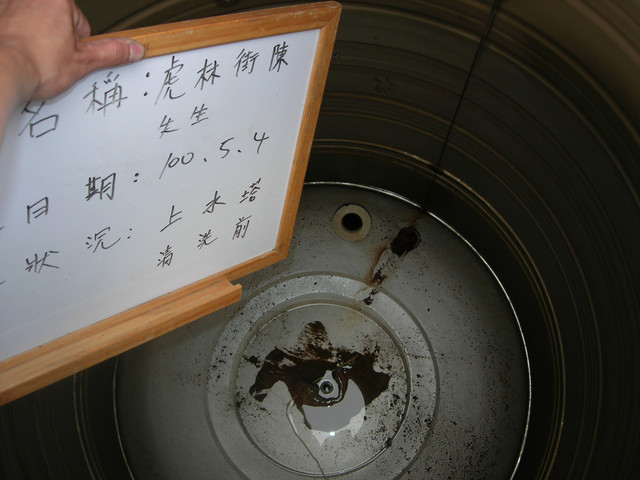 名稱：虎林街陳
先生
日期：100.5.4
狀況：上水塔
清洗前